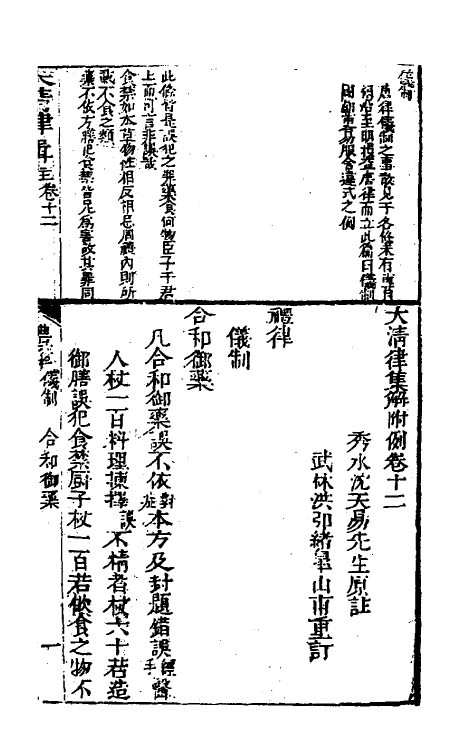 儀制
唐律儀制之事散見于各條未有專目
明洪武至明損益唐律而立此篇曰儀制
此條皆是誤犯之罪藥食何物臣子于君
上而可言非誤哉
食禁如本草物性相反相忌周禮內則所
載不食之類
藥不依方膳犯食禁皆足爲害故其罪同
大清律集解附例卷十二
秀水沈天易先生原註
武林洪弘緒皐山甫重訂
禮律
儀制
合和御藥
凡合和御藥誤不依對症本方及封題錯誤經手醫
人杖一百料理揀擇誤不精者杖六十若造
御膳誤犯食禁厨子杖一百若飲食之物不
大清律輯註卷十二
禮律儀制 合和御藥 一